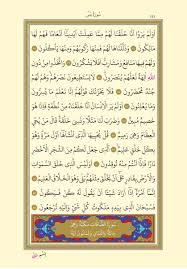 سُورَةُ يٰسٓ
أَوَلَمْ يَرَوْا أَنَّا خَلَقْنَا لَهُمْ مِمَّا عَمِلَتْ أَيْدِينَا أَنْعَامًا فَهُمْ لَهَا
مَالِكُونَ وَذَلَّلْنَاهَا لَهُمْ فَمِنْهَا رَكُوبُهُمْ وَمِنْهَا يَأْكُلُونَ
وَلَهُمْ فِيهَا مَنَافِعُ وَمَشَارِبُ أَفَلَا يَشْكُرُونَ وَاتَّخَذُوا مِنْ دُونِ
اللَّهِ آلِهَةً لَعَلَّهُمْ يُنْصَرُونَ لَا يَسْتَطِيعُونَ نَصْرَهُمْ وَهُمْ لَهُمْ
جُنْدٌ مُحْضَرُونَ فَلَا يَحْزُنْكَ قَوْلُهُمْ إِنَّا نَعْلَمُ مَا يُسِرُّونَ وَمَا
يُعْلِنُونَ أَوَلَمْ يَرَ الْإِنْسَانُ أَنَّا خَلَقْنَاهُ مِنْ نُطْفَةٍ فَإِذَا هُوَ
خَصِيمٌ مُبِينٌ وَضَرَبَ لَنَا مَثَلًا وَنَسِيَ خَلْقَهُ قَالَ مَنْ يُحْيِي
الْعِظَامَ وَهِيَ رَمِيمٌ قُلْ يُحْيِيهَا الَّذِي أَنْشَأَهَا أَوَّلَ مَرَّةٍ وَهُوَ
بِكُلِّ خَلْقٍ عَلِيمٌ الَّذِي جَعَلَ لَكُمْ مِنَ الشَّجَرِ الْأَخْضَرِ
نَارًا فَإِذَا أَنْتُمْ مِنْهُ تُوقِدُونَ أَوَلَيْسَ الَّذِي خَلَقَ السَّمٰوَاتِ
وَالْأَرْضَ بِقَادِرٍ عَلَى أَنْ يَخْلُقَ مِثْلَهُمْ بَلَى وَهُوَ الْخَلَّاقُ الْعَلِيمُ
إِنَّمَا أَمْرُهُ إِذَا أَرَادَ شَيْئًا أَنْ يَقُولَ لَهُ كُنْ فَيَكُونُ
فَسُبْحَانَ الَّذِي بِيَدِهِ مَلَكُوتُ كُلِّ شَيْءٍ وَإِلَيْهِ تُرْجَعُونَ